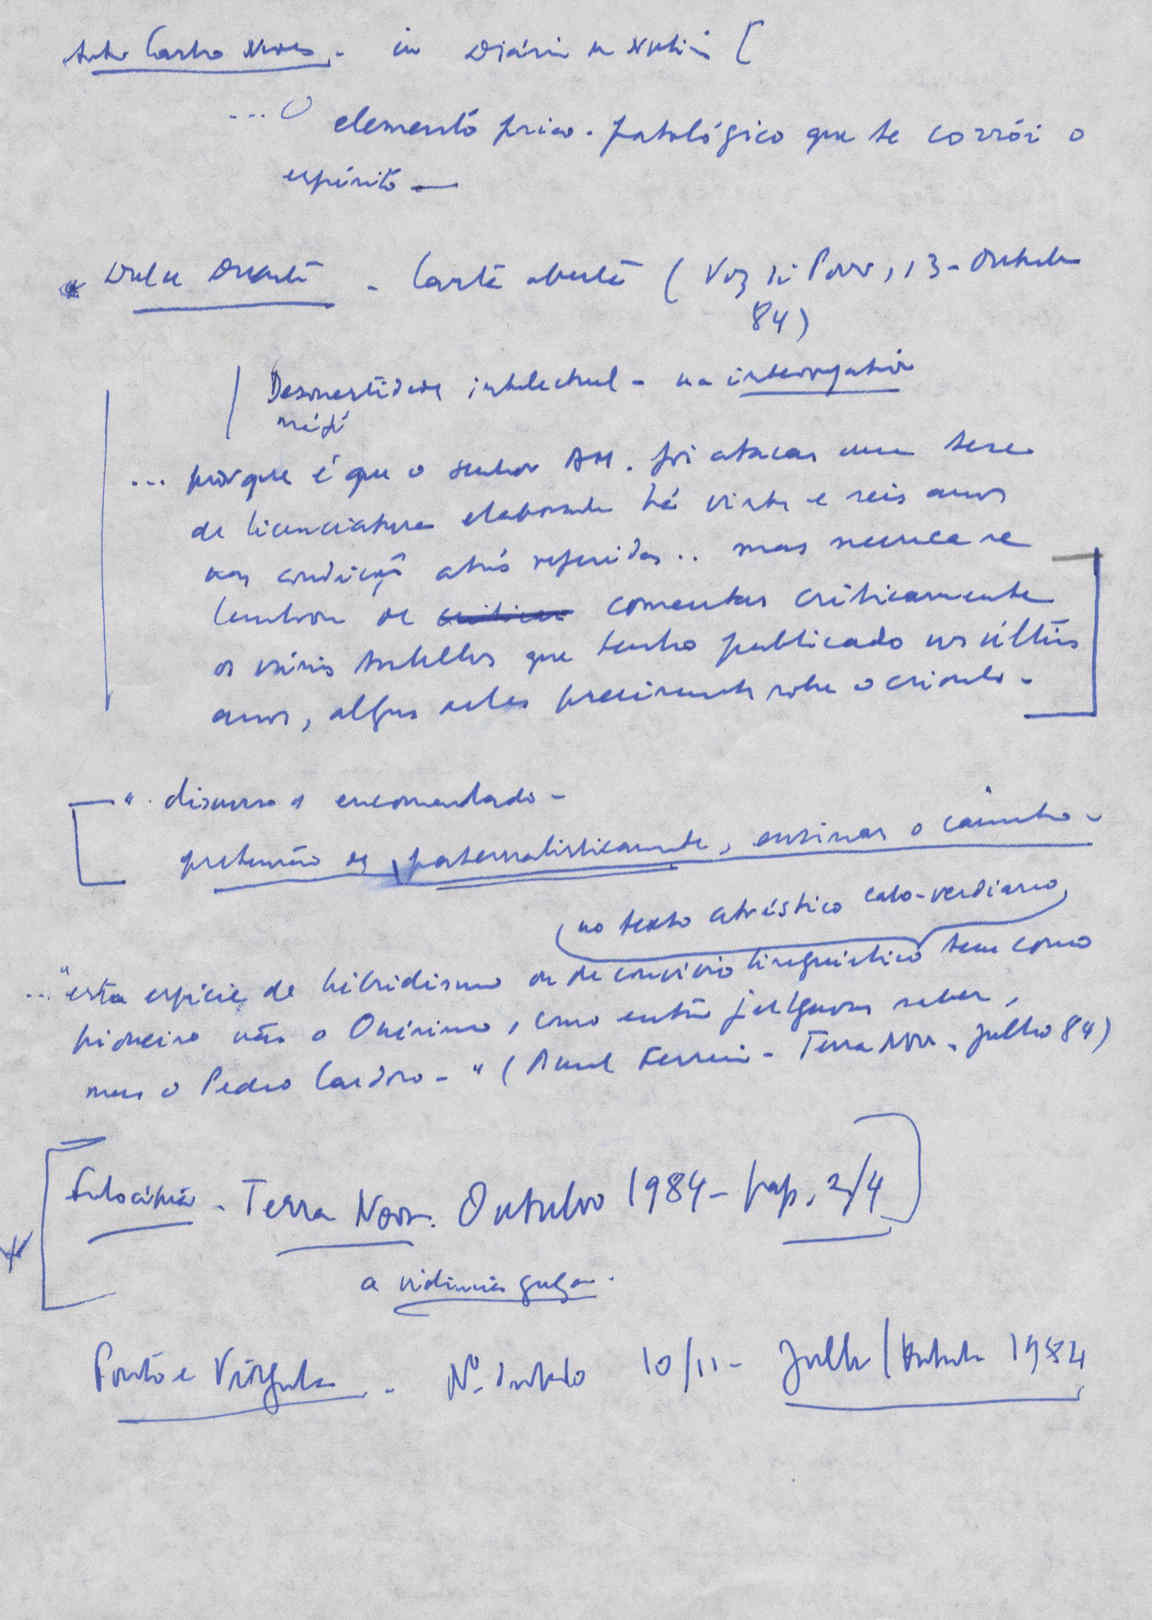 Carlo Neves - in Diário de Notíci [
... O elemento psico-patológico que te corrói o
espírito —
* Dulce Duarte - Carta aberta ( Voz di Povo, 13 - Outubro
84)
Desonestidade intelectual - na interrogatio
... porque é que o senhor AM. foi atacar uma tese
de licenciatura elaborada há vinte e seis anos
nas condições atrás referidas .. mas nunca se
lembrou de comentar criticamente
os vários trabalhos que tenho publicado nos últimos
anos, alguns deles precisamente sobre o crioulo -
" discurso encomendado -
pretensão de, paternalisticamente, ensinar o caminho -
no texto artístico cabo-verdiano
... "esta espécie de hibridismo ou de convívio linguístico tem como
pioneiro não o Onésimo, como então julgavam saber,
mas o Pedro Cardoso - " ( Manuel Ferreira - Terra Nova - Julho 84)
- Terra Nova. Outubro 1984 - pag. 2/4
a vidência
Ponto e Vírgula - Nº 10/11 - Julho / Outubro 1984